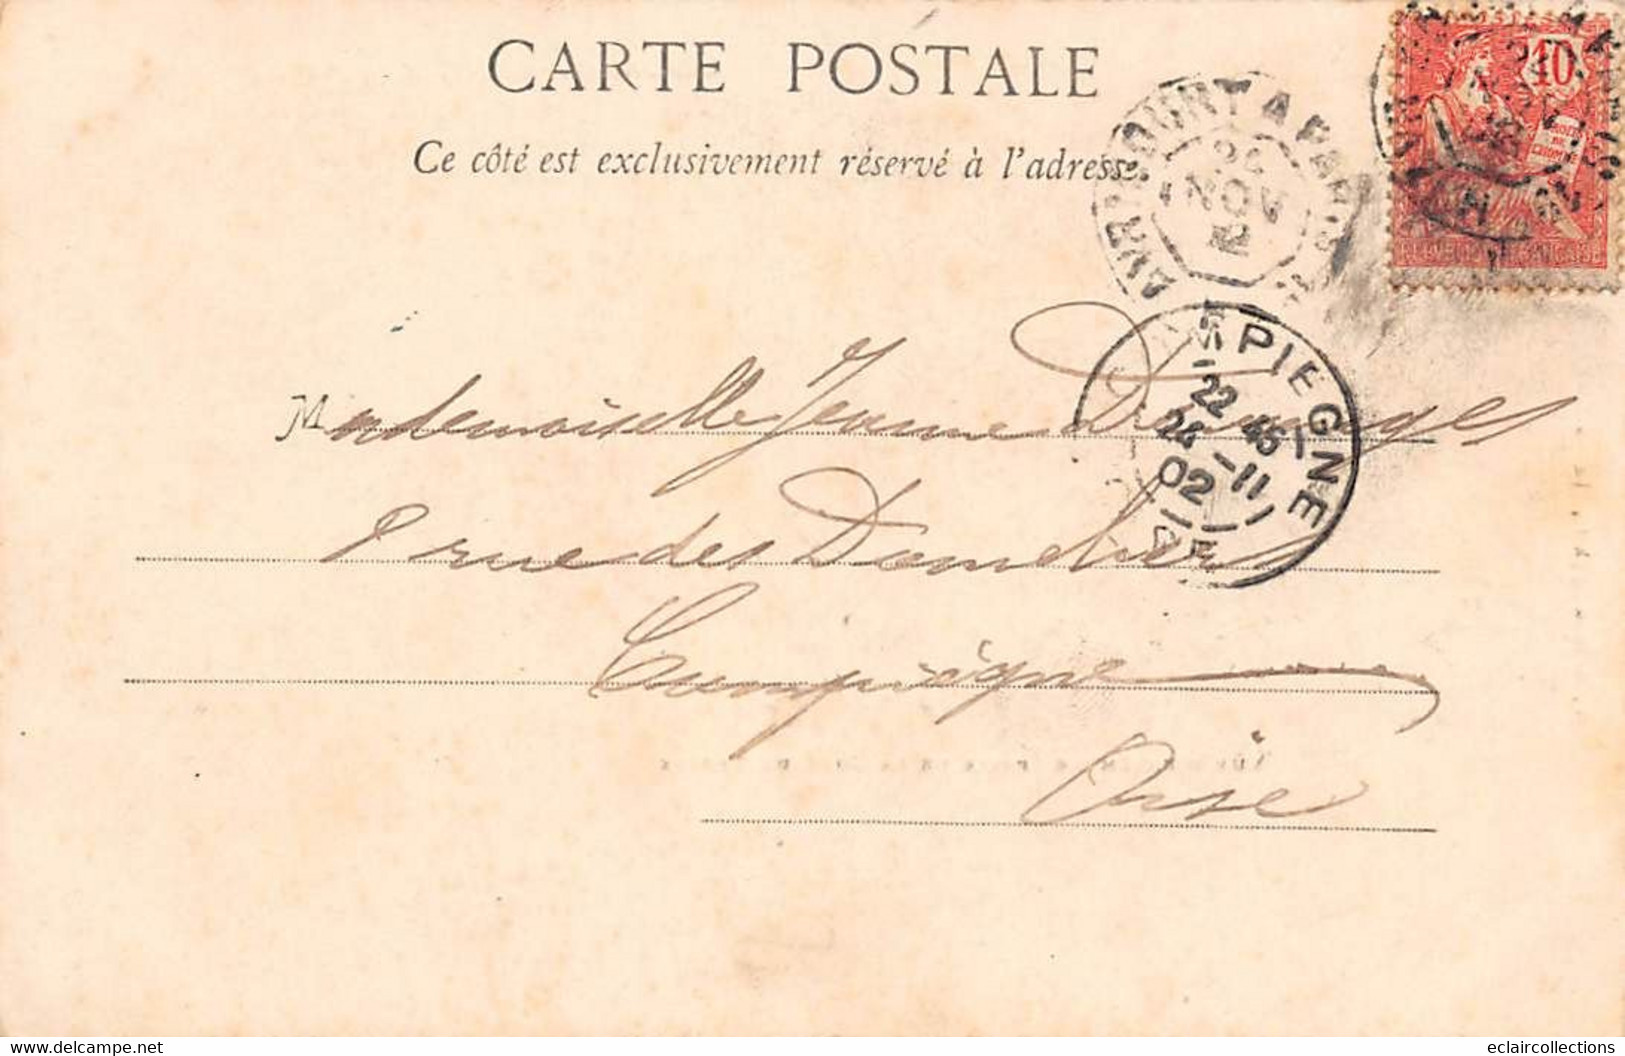 CARTE POSTALE
Ce côté est exclusivement réservé à l'adresse.
10
AVRICOURT A PARIS
NOV
COMPIEGNE
22 45
24 -11
02
OISE
Mademoiselle Jeanne
8 rue des Domeliers
Compiègne
Oise
www.delcampe.net
eclaircollections